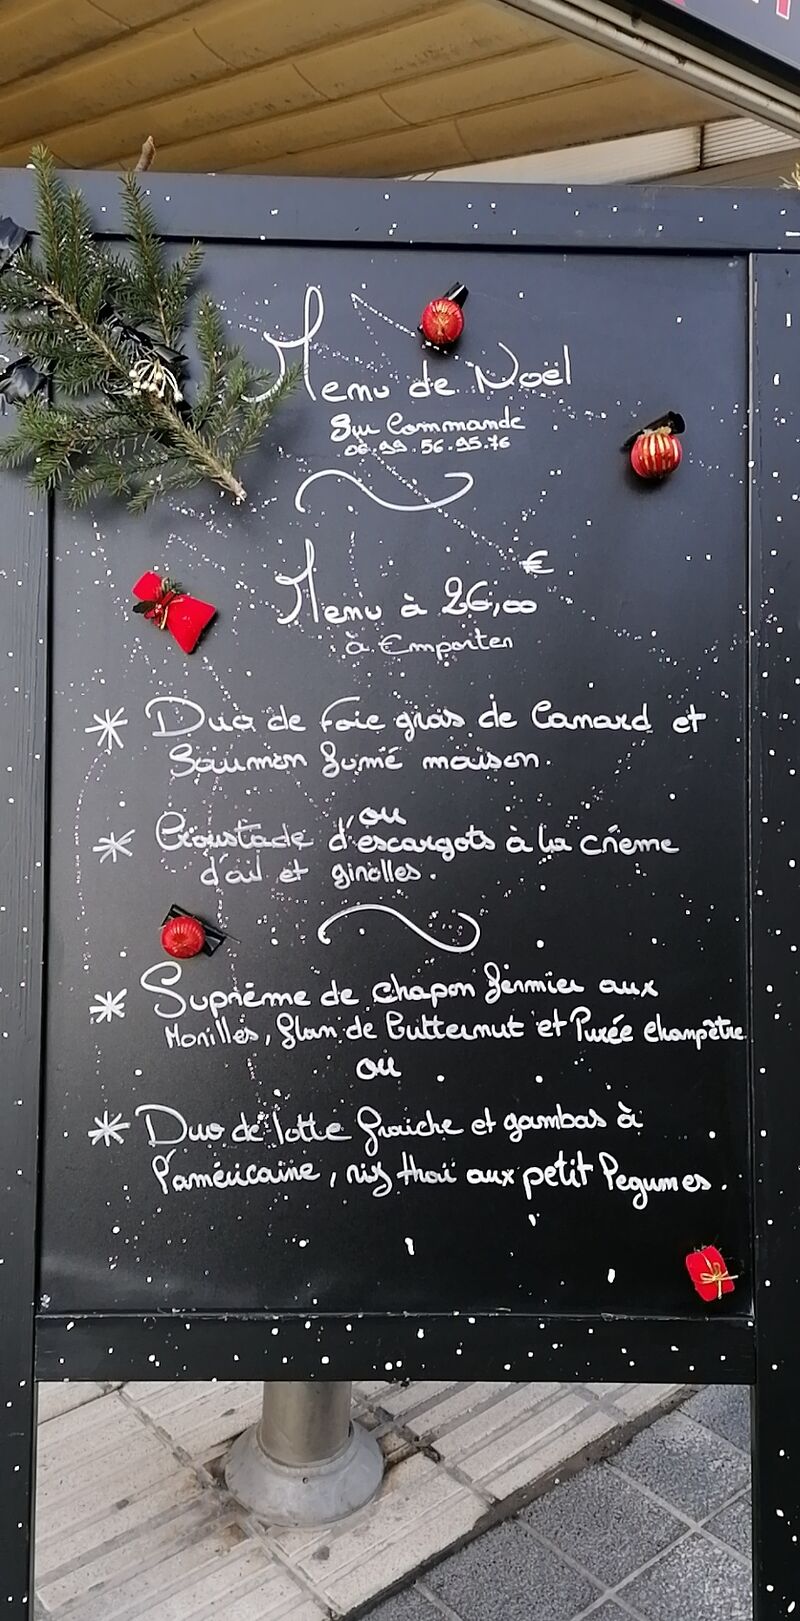 Menu de Noël
Sur Commande
06.99.56.95.76
Menu à 26,00 €
à Emporter
* Duo de Foie gras de Canard et
Saumon fumé maison.
ou
* Croustade d'escargots à la crème
d'ail et girolles.
* Suprême de chapon fermier aux
Morilles, flan de Butternut et Purée champêtre
ou
* Duo de lotte fraiche et gambas à
l'américaine, riz thaï aux petit légumes.